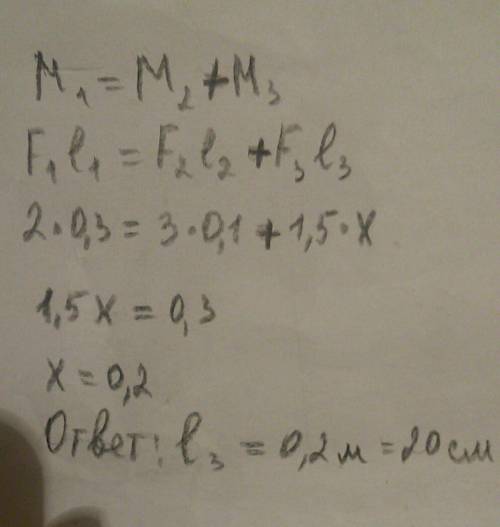 M₁ = M₂ + M₃
F₁l₁ = F₂l₂ + F₃l₃
2·0,3 = 3·0,1 + 1,5·x
1,5x = 0,3
x = 0,2
Ответ: l₃ = 0,2м = 20см